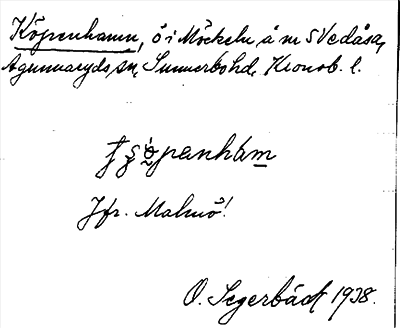 Köpenhamn, ö i Möckeln, å nr S Vedåsa,
Agunnaryds sn, Sunnerbo hd, Kronob. l.
Jfr. Malmö!
O. Segerbäck 1938.